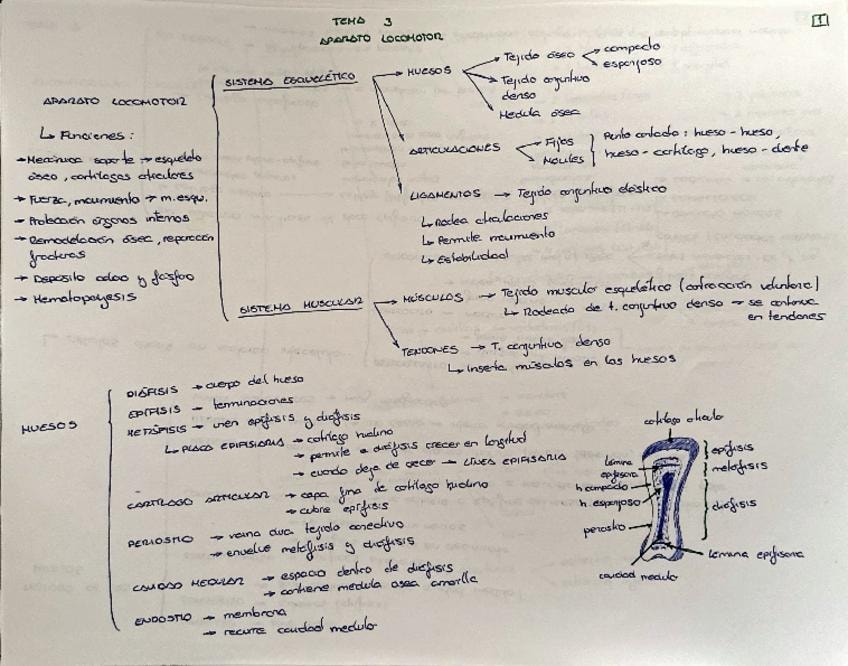 TEMA 3
APARATO LOCOMOTOR
1
APARATO LOCOMOTOR
↳ Funciones:
→ Mecánica soporte → esqueleto
óseo, cartílagos articulares
→ Fuerza, movimiento → m. esqu.
→ Protección órganos internos
→ Remodelación ósea, reparación
fracturas
→ Depósito calcio y fósforo
→ Hematopoyesis
SISTEMA ESQUELÉTICO
→ HUESOS
→ Tejido óseo
compacto
esponjoso
→ Tejido conjuntivo
denso
→ Médula ósea
ARTICULACIONES
Fijas
Móviles
Punto contacto: hueso-hueso,
hueso-cartílago, hueso-diente
LIGAMENTOS → Tejido conjuntivo elástico
↳ Rodea articulaciones
↳ Permite movimiento
↳ Estabilidad
SISTEMA MUSCULAR
→ MÚSCULOS → Tejido muscular esquelético (contracción voluntaria)
↳ Rodeado de t. conjuntivo denso → se continúa
en tendones
TENDONES → T. conjuntivo denso
↳ Inserta músculos en los huesos
HUESOS
DIÁFISIS → cuerpo del hueso
EPÍFISIS → terminaciones
METÁFISIS → unen epífisis y diáfisis
↳ PLACA EPIFISARIA → cartílago hialino
→ permite a diáfisis crecer en longitud
→ cuando deja de crecer → LÍNEA EPIFISARIA
CARTÍLAGO ARTICULAR → capa fina de cartílago hialino
→ cubre epífisis
PERIOSTIO → vaina dura tejido conectivo
→ envuelve metáfisis y diáfisis
CAVIDAD MEDULAR → espacio dentro de diáfisis
→ contiene médula ósea amarilla
ENDOSTIO → membrana
→ recubre cavidad medular
cartílago articular
lámina
epifisaria
h. compacto
h. esponjoso
periostio
cavidad medular
epífisis
metáfisis
diáfisis
lámina epifisaria